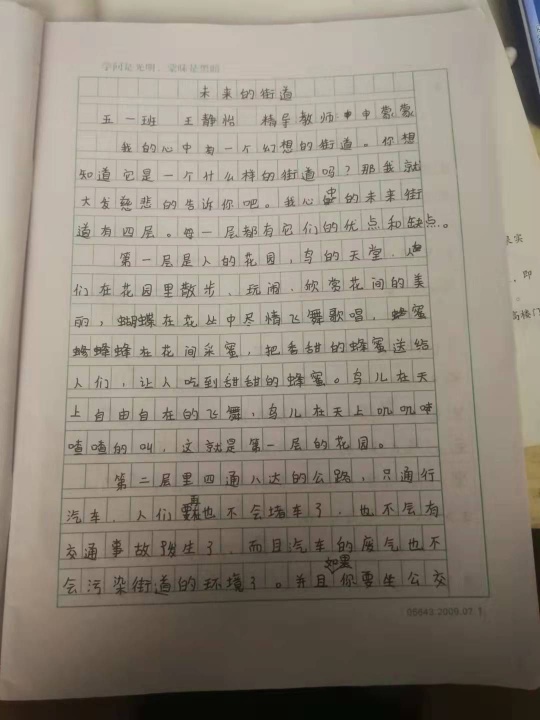 学问是光明，蒙昧是黑暗
未来的街道
五一班 王静怡 指导教师申中蒙蒙
我的心中有一个幻想的街道。你想
知道它是一个什么样的街道吗？那我就
大发慈悲的告诉你吧。我心中的未来街
道有四层。每一层都有它们的优点和缺点。
第一层是人的花园，鸟的天堂，人
们在花园里散步、玩闹、欣赏花间的美
的，蝴蝶在花丛中尽情飞舞歌唱，蜜
蜂在花间采蜜，把香甜的蜂蜜送给
人们，让人吃到甜甜的蜂蜜。鸟儿在天
上自由自在的飞舞，鸟儿在天上叽叽喳
喳喳的叫，这就是第一层的花园。
第二层里四通八达的公路，只通行
汽车，人们再也不会堵车了，也不会有
交通事故发生了，而且汽车的废气也不
会污染街道的环境了。并且如果你要坐公交
05643.2009.07.1